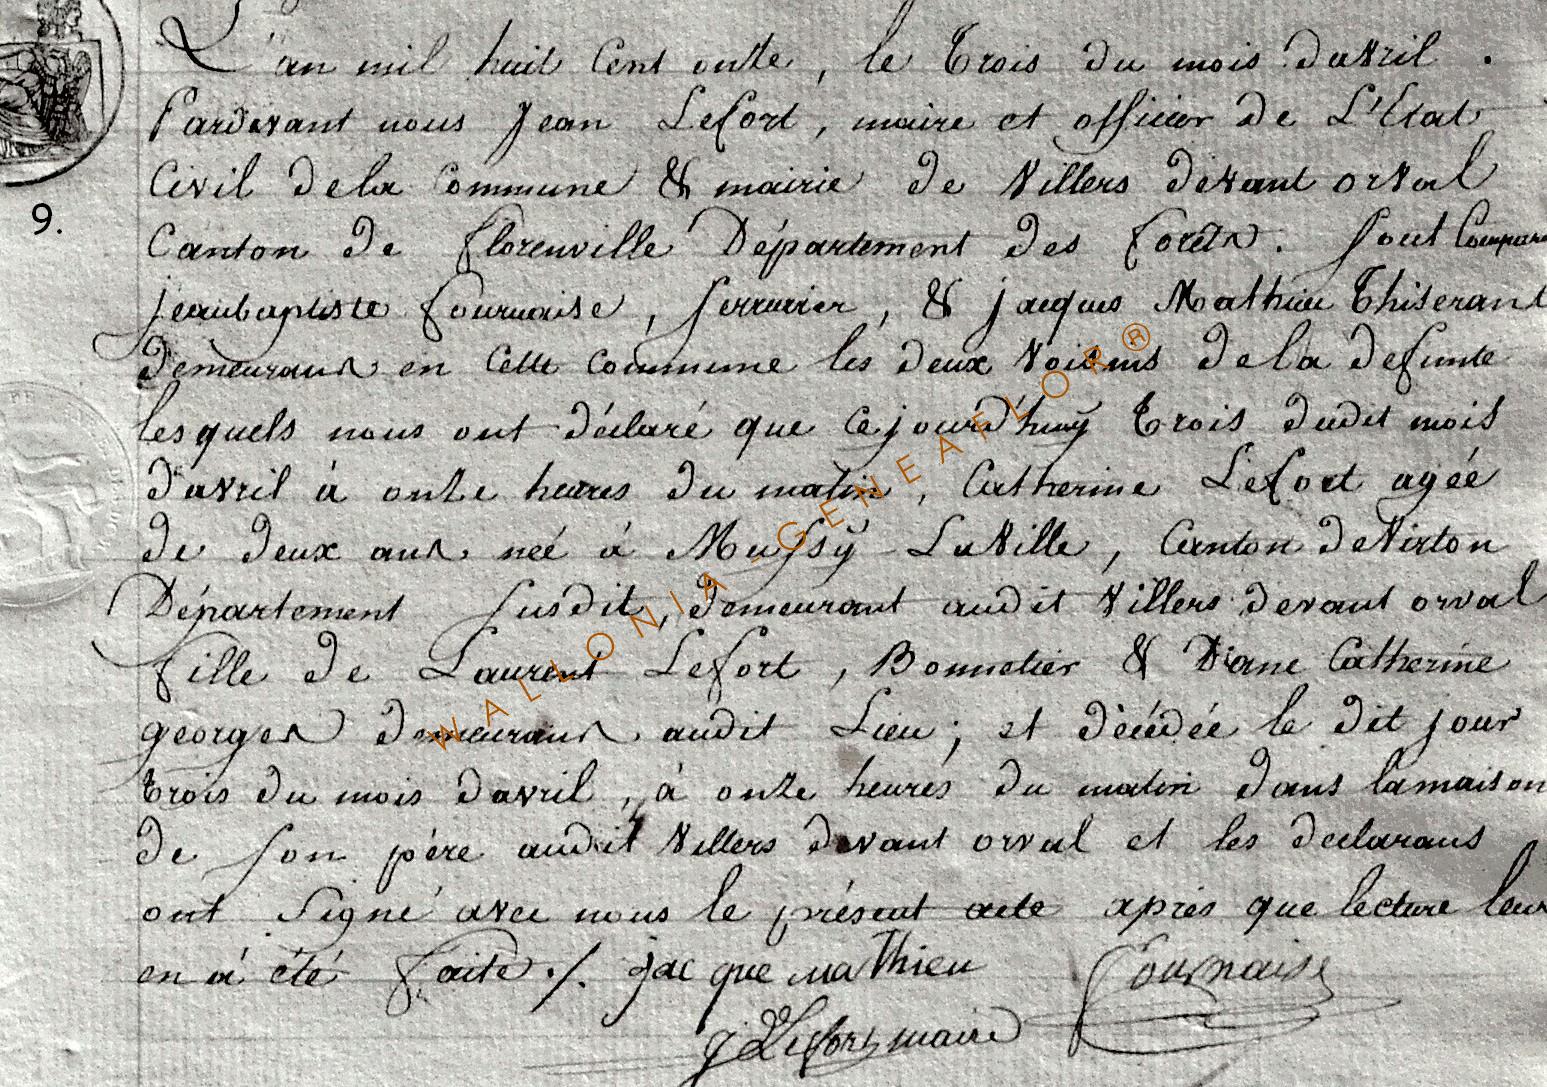 L'an mil huit Cent onze, le trois du mois d'avril.
Pardevant nous Jean Lefort, maire et officier de L'Etat
Civil de la Commune & mairie de Villers devant orval
Canton de florenville Département des forêts. Sont Compar
jeanbaptiste fournaise, serrurier, & jacques Mathieu Thiserant
demeurans en Cette Commune les deux Voisins de la defunte
lesquels nous ont déclaré que cejourd'huÿ trois dudit mois
d'avril à onze heures du matin, Catherine Lefort agéé
de deux ans neé à Mussÿ LaVille, Canton de Virton
Département susdit, demeurant audit Villers devant orval
fille de Laurent Lefort, Bonnetier & Diane Catherine
georges demeurans audit Lieu; et décédée le dit jour
trois du mois d'avril, à onze heures du matin dans lamaison
de son père audit Villers devant orval et les declarans
ont Signé avec nous le présent acte après que lecture leur
en à été faite ./. jac que maThieu fournaise
g Lefort maire
9.
WALLONIA-GENEAFLOR®